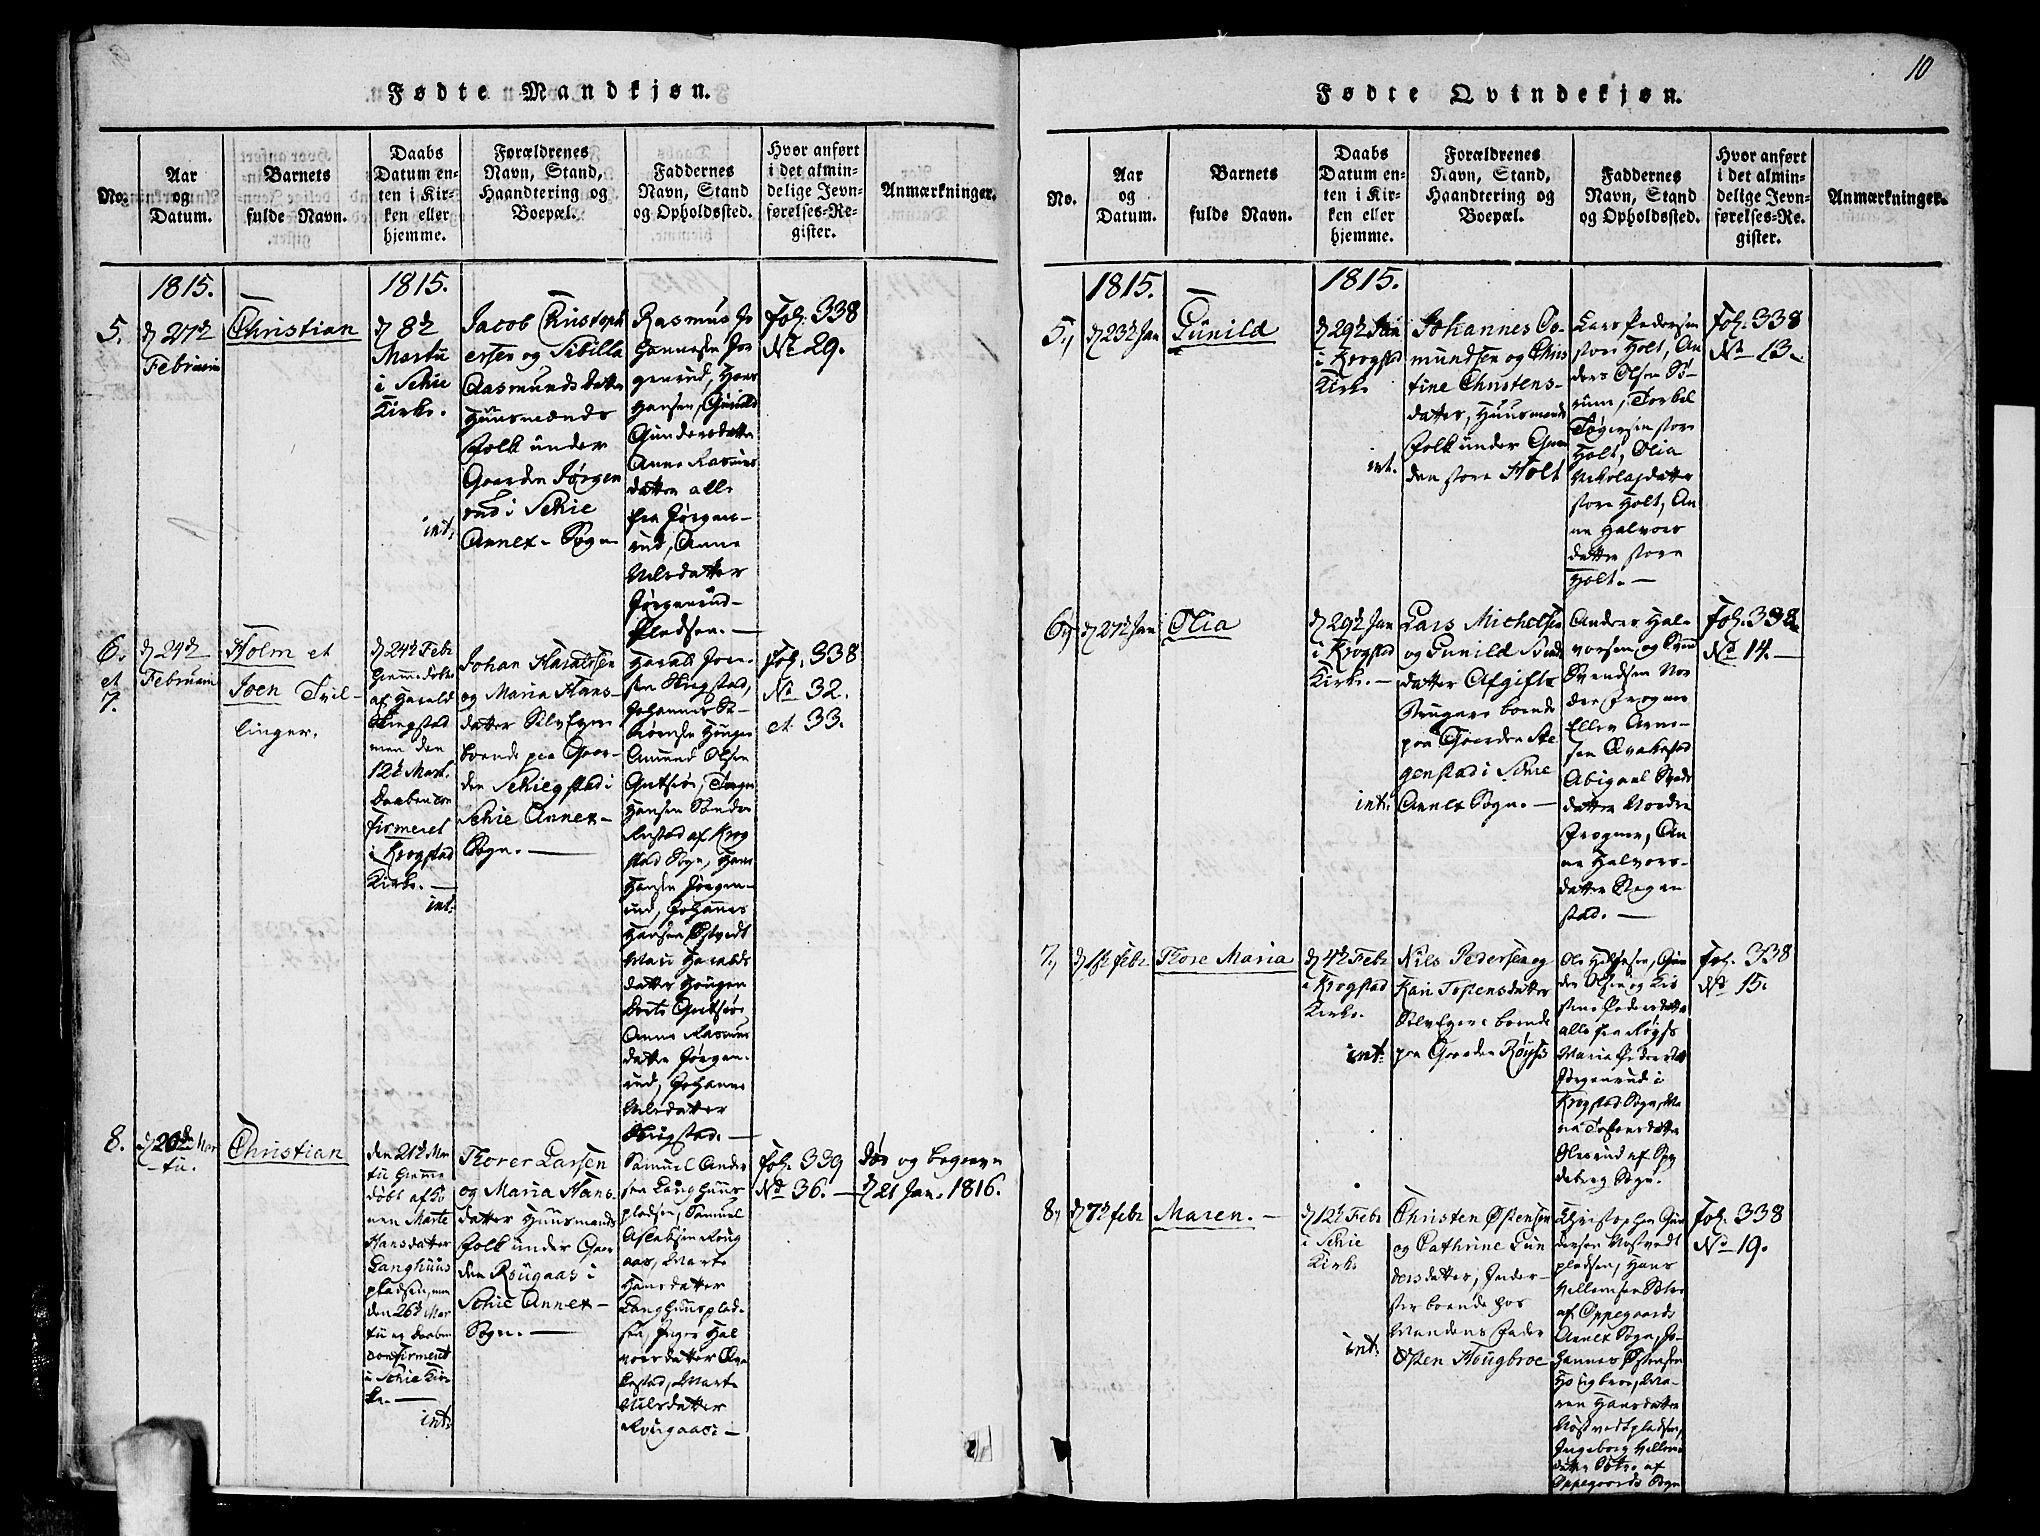 Fødte Mandkjøn.
No.
Aar
og
Datum.
Barnets
fulde Navn.
Daabs
Datum en-
ten i Kir-
ken eller
hjemme.
Forældrenes
Navn, Stand,
Haandtering og
Boepæl.
Faddernes
Navn, Stand
og Opholdssted.
Hvor anført
i det almin-
delige Jevn-
førelses-Re-
gister.
Anmærkninger.
1815.
1815.
5.
d 27d
Februarii
Christian
d 8de
Martii
i Schie
Kirke.
int:
Jacob Christoph
ersen og Sibilla
Rasmunds datter
Huusmænds
folk under
Gaarden Jørgen
rud i Schie
Annex-Sogn
Rasmus Jo
hannesen Jør
genrud, Hans
Hansen, Gunild
Gundersdatter
Anne Rasmus
datter alle
fra Jørgen-
rud, Anne
Nilsdatter
Jørgenrud-
Pladsen.
Fol. 338
No 29.
6.
et
7.
d 24d
Februarii
Holm et
Joen Tvil-
linger.
d 24d Febr
hiemmedøbt
af Harald
Skiegstad
men den
12d Mart.
Daaben con
firmeret
i Krogstad
Kirke.
int:
Johan Haraldsen
og Maria Hans-
datter Selv Eyere
boende paa Gaar-
den Schiegstad i
Schie Annex-
Sogn.
Harald Joen-
sen Skiegstad,
Johannes
Hougen
Amund Olsen
Hansen Sønder
af Krog
stad Sogn, Hans
Hansen Jørgen-
rud, Johannes
Hansen Østvedt
Mari Haralds
datter Hougen
Anne Rasmus
datter Jørgen-
rud, Johanne
Nilsdatter
Skiegstad.
Fol. 338
No 32.
et 33.
8.
d 20de Mar
tii.
Christian
den 21d Mar
tii hiemme
døbt af Ko
nen Marte
Hansdatter
Langhuus
pladsen, men
den 26d Mar
tii er Daaben
confirmeret
i Schie Kir
ke.
int:
Thorer Larsen
og Maria Hans
datter Huusmands
folk under Gaar
den Rougaas i
Schie Annex-
Sogn.
Samuel Ander
sen Langhuus
pladsen, Samuel
Aslaksen Roug
aas, Marte
Hansdatter
Langhuusplad-
sen, Inger Hal
vorsdatter Qva
kestad, Marte
Nilsdatter
Rougaas:
fol. 339
No 36.
Døe og begraven
d 21 Jan. 1816.
10
Fødte Qvindekjøn.
No.
Aar
og
Datum.
Barnets
fulde Navn.
Daabs
Datum en-
ten i Kir-
ken eller
hjemme.
Forældrenes
Navn, Stand,
Haandtering og
Boepæl.
Faddernes
Navn, Stand
og Opholdssted.
Hvor anført
i det almin-
delige Jevn-
førelses-Re-
gister.
Anmærkninger.
1815.
1815.
5.,
d 23d Jan
Gunild
d 29d Jan
i Krogstad
Kirke
int.
Johannes Oo-
mundsen og Chris
tine Christens-
datter, Huusmands
folk under Gaar
den store Holt
Lars Pedersen
store Holt, An
ders Olsen
store
Holt, Olia
Nikolajdatter
store Holt, An
ne Halvors
datter store
Holt.
Fol. 338
No 13.
6.,
d 27d Jan
Olia
d 29d Jan
i Krogstad
Kirke.
int:
Lars Michelsen
og Gunild Svends
datter Afgifts
Brugere boende
paa Gaarden Ste
genstad i Schie
Annex Sogn.
Anders Hal-
vorsen, og Svend
Svendsen Nor
dre Frogner
Ellev Arne-
sen Qvakestad
Abigael Svends
datter Nordre
Frogner, An
ne Halvors-
datter Stegen
stad.
Fol. 338
No 14.
7.,
d 1ste febr
Thore Maria
d 4d Febr
i Krogstad
Kirke.
int:
Nils Pedersen og
Kari Tostensdatter
Selv Eyere boende
paa Gaarden Røyss
og Kis
alle fra Røyss
Maria Pedersdatt
Jørgenrud i
Krogstad Sogn, Ma
Tostensdatter
Olerud af Spy
deberg Sogn.
fol. 338
No 15.
8.,
d 7d febr
Maren.
d 12d Febr
i Schie
Kirke
int:
Christen Østensen
og Cathrine Gun
dersdatter, Inder-
ster boende hos
Mandens Fader
Østen Hougbroe
Christopher Gun
dersen Nøstvedt
pladsen, Hans
af Oppegaards
Annex Sogn, Jo-
hannes Østensen
Hougbroe, Ma-
ren Hansdatter
Nøstvedtpladsen,
Ingeborg
datter af
Oppegaards Sogn
fol. 338
No 19.